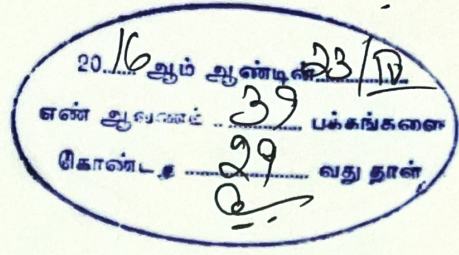 2016 ஆம் ஆண்டின் 23/IV
எண் ஆவணம் 39 பக்கங்களை
கொண்டது 29 வது தாள்